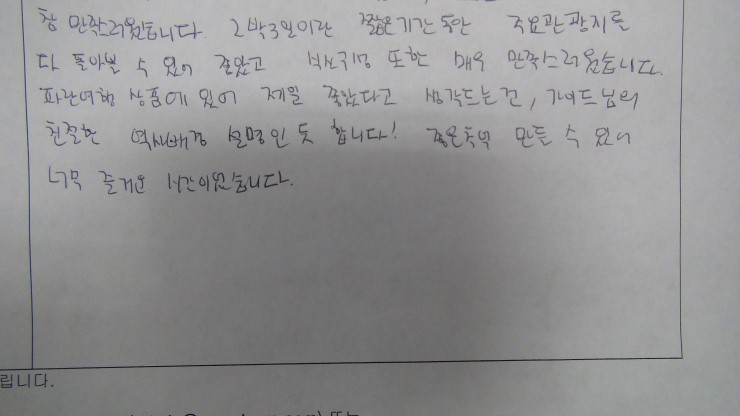 참 만족스러웠습니다. 2박3일이란 짧은기간동안 주요관광지를
다 돌아볼 수 있어 좋았고 식사, 귀빙 또한 매우 만족스러웠습니다.
파란여행 상품에 있어 제일 좋았다고 생각드는건, 가이드님의
친절한 역사배경 설명인 듯 합니다! 좋은추억 만들 수 있어
너무 즐거운 시간이었습니다.
립니다.